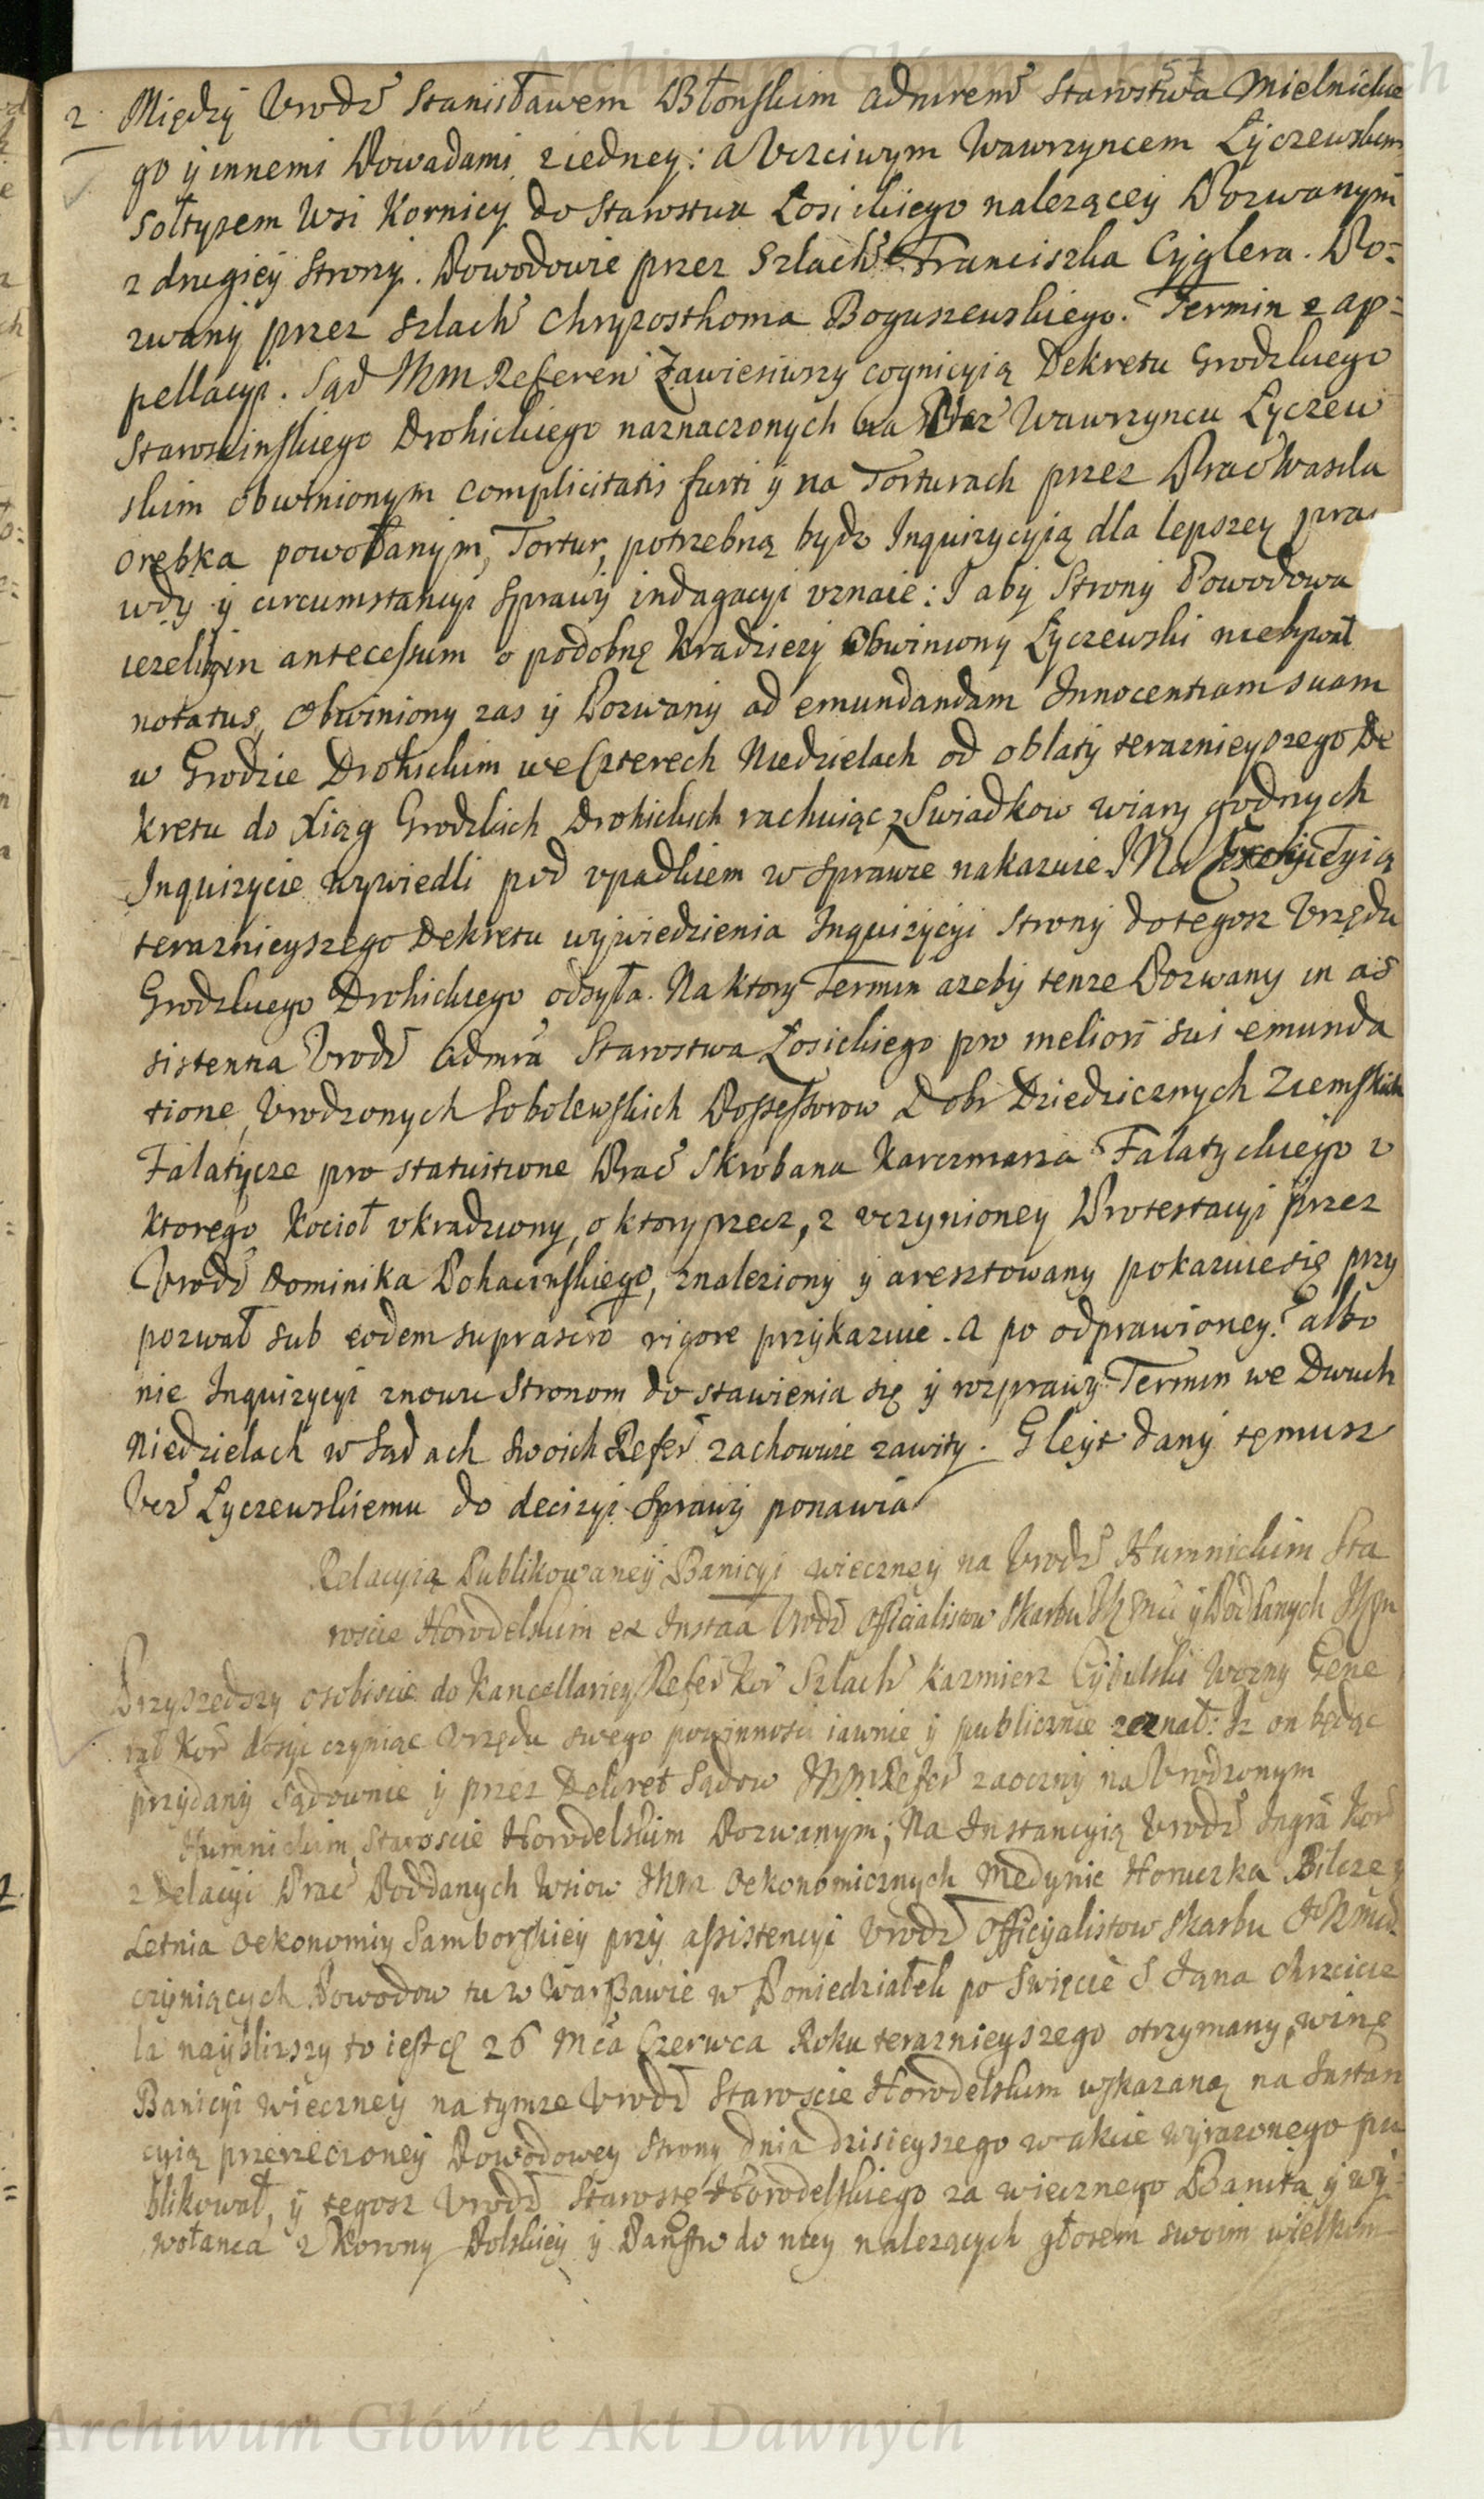 57
2. Między Vrodź Stanisławem Błonskim Admrem Starostwa Mielnickie
go y innemi Powadami z iedney: a Vczciwym Wawrzyncem Łyczewskim
Sołtysem Wsi Kornicy do Starostwa Łosickiego nalezącey Pozwanym
z drugiey Strony. Powodowie przez Szlach Franciszka Cyglera. Po=
zwany przez Szlach Chryzosthoma Boguszewskiego. Termin z ap=
pellacyi. Sąd JKM Referen Zawiesiwszy cognicyią Dekretu Grodzkiego
Starościnskiego Drohickiego naznaczonych na Wawrzyncu Łyczew
skim obwinionym complicitatis furti y na Torturach przez Prac Wasila
Orębka powołanym, Tortur, potrzebną bydz Inquizycyią dla lepszey pra
wdy y circumstancyi Sprawy indagacyi vznaie: I aby Strony Powodowa
iezeli in antecessum o podobnę kradziezy Obwiniony Łyczewski niebywał
notatus, Obwiniony zas y Pozwany ad emundandam Innocentiam suam
w Grodzie Drohickim we Czterech Niedzielach od oblaty teraznieyszego De
kretu do Xiąg Grodzkich Drohickich rachuiąc z Swiadkow wiary godnych
Inquizycie wywiedli pod vpadkiem w Sprawie nakazuie. I Na Exekucyią
teraznieyszego Dekretu wywiedzienia Inquizycyi Strony do tegosz Vrzędu
Grodzkiego Drohickiego odsyła. Na ktory Termin azeby tenze Pozwany in as
sistentia Vrodź Admra Starostwa Łosickiego pro meliori sui emunda
tione, Vrodzonych Sobolewskich Possessorow Dobr Dziedzicznych Ziemskich
Falatycze pro statuitione Prac Skrobana Karczmarza Falatyckiego v
ktorego kocioł vkradziony, o ktory rzecz, z vczynioney Protestacyi przez
Vrodź Dominika Bohacinskiego, znaleziony y aresztowany pokazuie się przy
pozwał sub eodem suprascro rigore przykazuie. A po odprawioney? albo
nie Inquizycyi znowu Stronom do stawienia się y rozprawy Termin we Dwuch
Niedzielach w Sądach Swoich Refer zachowuie zawity. Gleyt dany temusz
Vcz Łyczewskiemu do decizyi Sprawy ponawia
Relacyia Publikowaney Banicyi wieczney na Vrodź Humnickim Sta
roscie Horodelskim ex Instaa Vrodź Officialistow Skarbu JKMci y Poddanych JKM
Przyszedszy osobiscie do Kancellariey Refer Kor Szlach Kazmierz Cybulski Wozny Gene
rał Kor dosyc czyniąc Vrzędu swego powinnosci iawnie y publicznie zeznał: Iz on będąc
przydany Sądownie y przez Dekret Sądow JKM Refer zaoczny na Vrodzonym
Humnickim Staroscie Horodelskim Pozwanym; Na Instancyią Vrodź Ingra Kor
z Delacyi Prac Poddanych Wsiow JKM Oekonomicznych Medynic Horuczka Bilcze y
Letnia Oekonomiy Samborskiey przy assistencyi Vrodź Officyalistow Skarbu JKMci
czyniących Powodow tu w Warszawie w Poniedziałek po Swięcie S Jana Chrzcicie
la nayblizszy to iest d 26 Mca Czerwca Roku teraznieyszego otrzymany, winę
Banicyi wieczney na tymze Vrodź Staroscie Horodelskim wskazaną na Instan
cyią przerzeczoney Powodowey Strony dnia dzisieyszego w akcie wyrazonego pu
blikował, y tegosz Vrodź Starostę Horodelskiego za wiecznego Banitą y wy=
wołanca z Korony Polskiey y Panstw do niey nalezących głosem swoim wielkim
Archiwum Główne Akt Dawnych